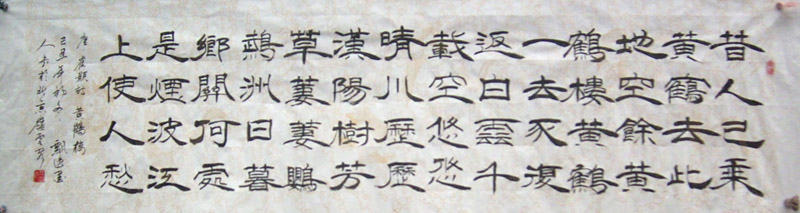 昔人已乘
黄鶴去此
地空餘黄
鶴樓黄鶴
一去不復
返白雲千
載空悠悠
晴川歷歷
漢陽樹芳
草萋萋鸚
鵡洲日暮
鄉關何處
是煙波江
上使人愁
唐崔顥詩黄鶴樓
己丑年
人书於